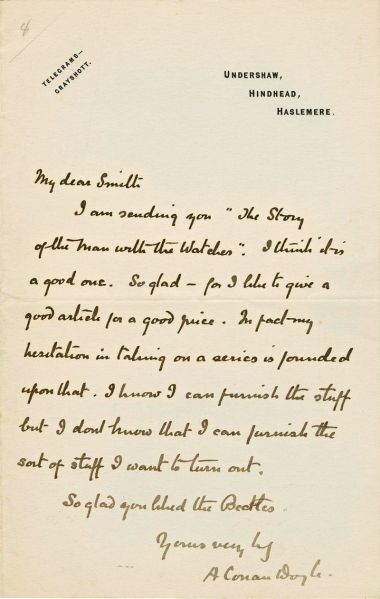 4
TELEGRAMS—
GRAYSHOTT.
UNDERSHAW,
HINDHEAD,
HASLEMERE.
My dear Smith
I am sending you "The Story
of the Man with the Watches". I think it is
a good one. So glad — for I like to give a
good article for a good price. In fact my
hesitation in taking on a series is founded
upon that. I know I can furnish the stuff
but I dont know that I can furnish the
sort of stuff I want to turn out.
So glad you liked the Beetles.
Yours very
A Conan Doyle.